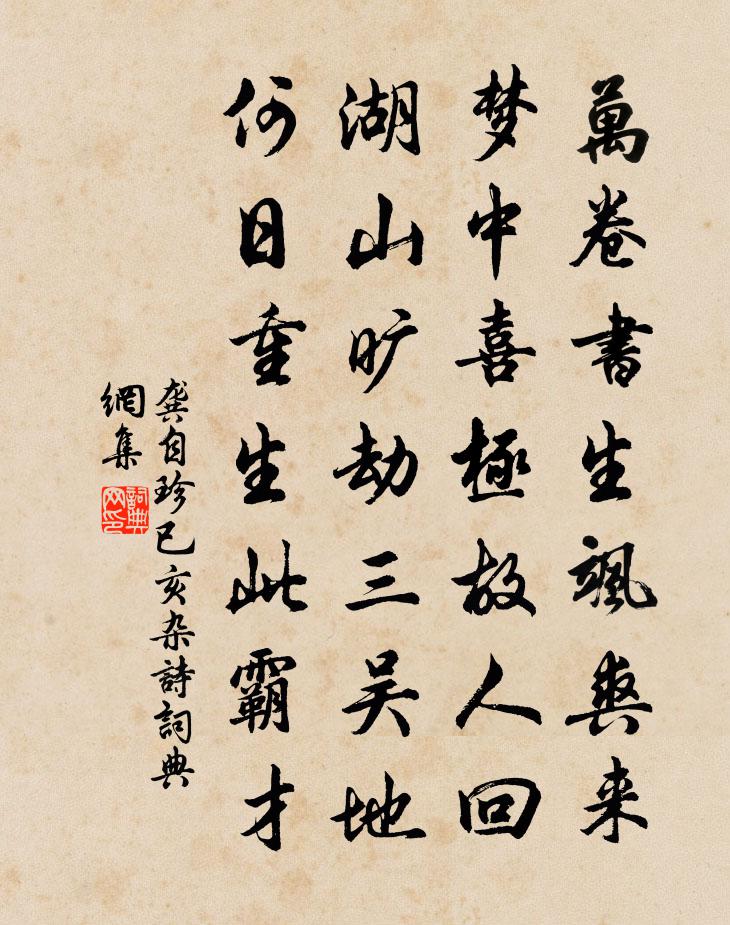 萬卷書生颯爽来
梦中喜極故人回
湖山旷劫三吴地
何日重生此霸才
龚自珍己亥杂詩詞典
網集
詞典网印